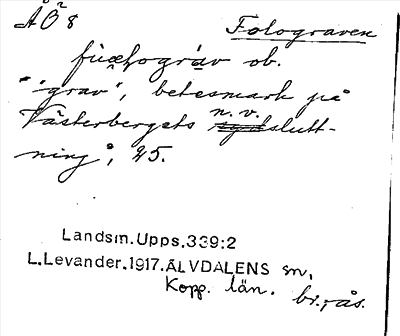 ÅÖ 8
Folograven
ob.
"-grav", betesmark på
n. v.
Västerbergets sydslutt-
ning, 25.
Landsm.Upps.339:2
L.Levander.1917.ÄLVDALENS sn,
Kopp. län.
br., ås.